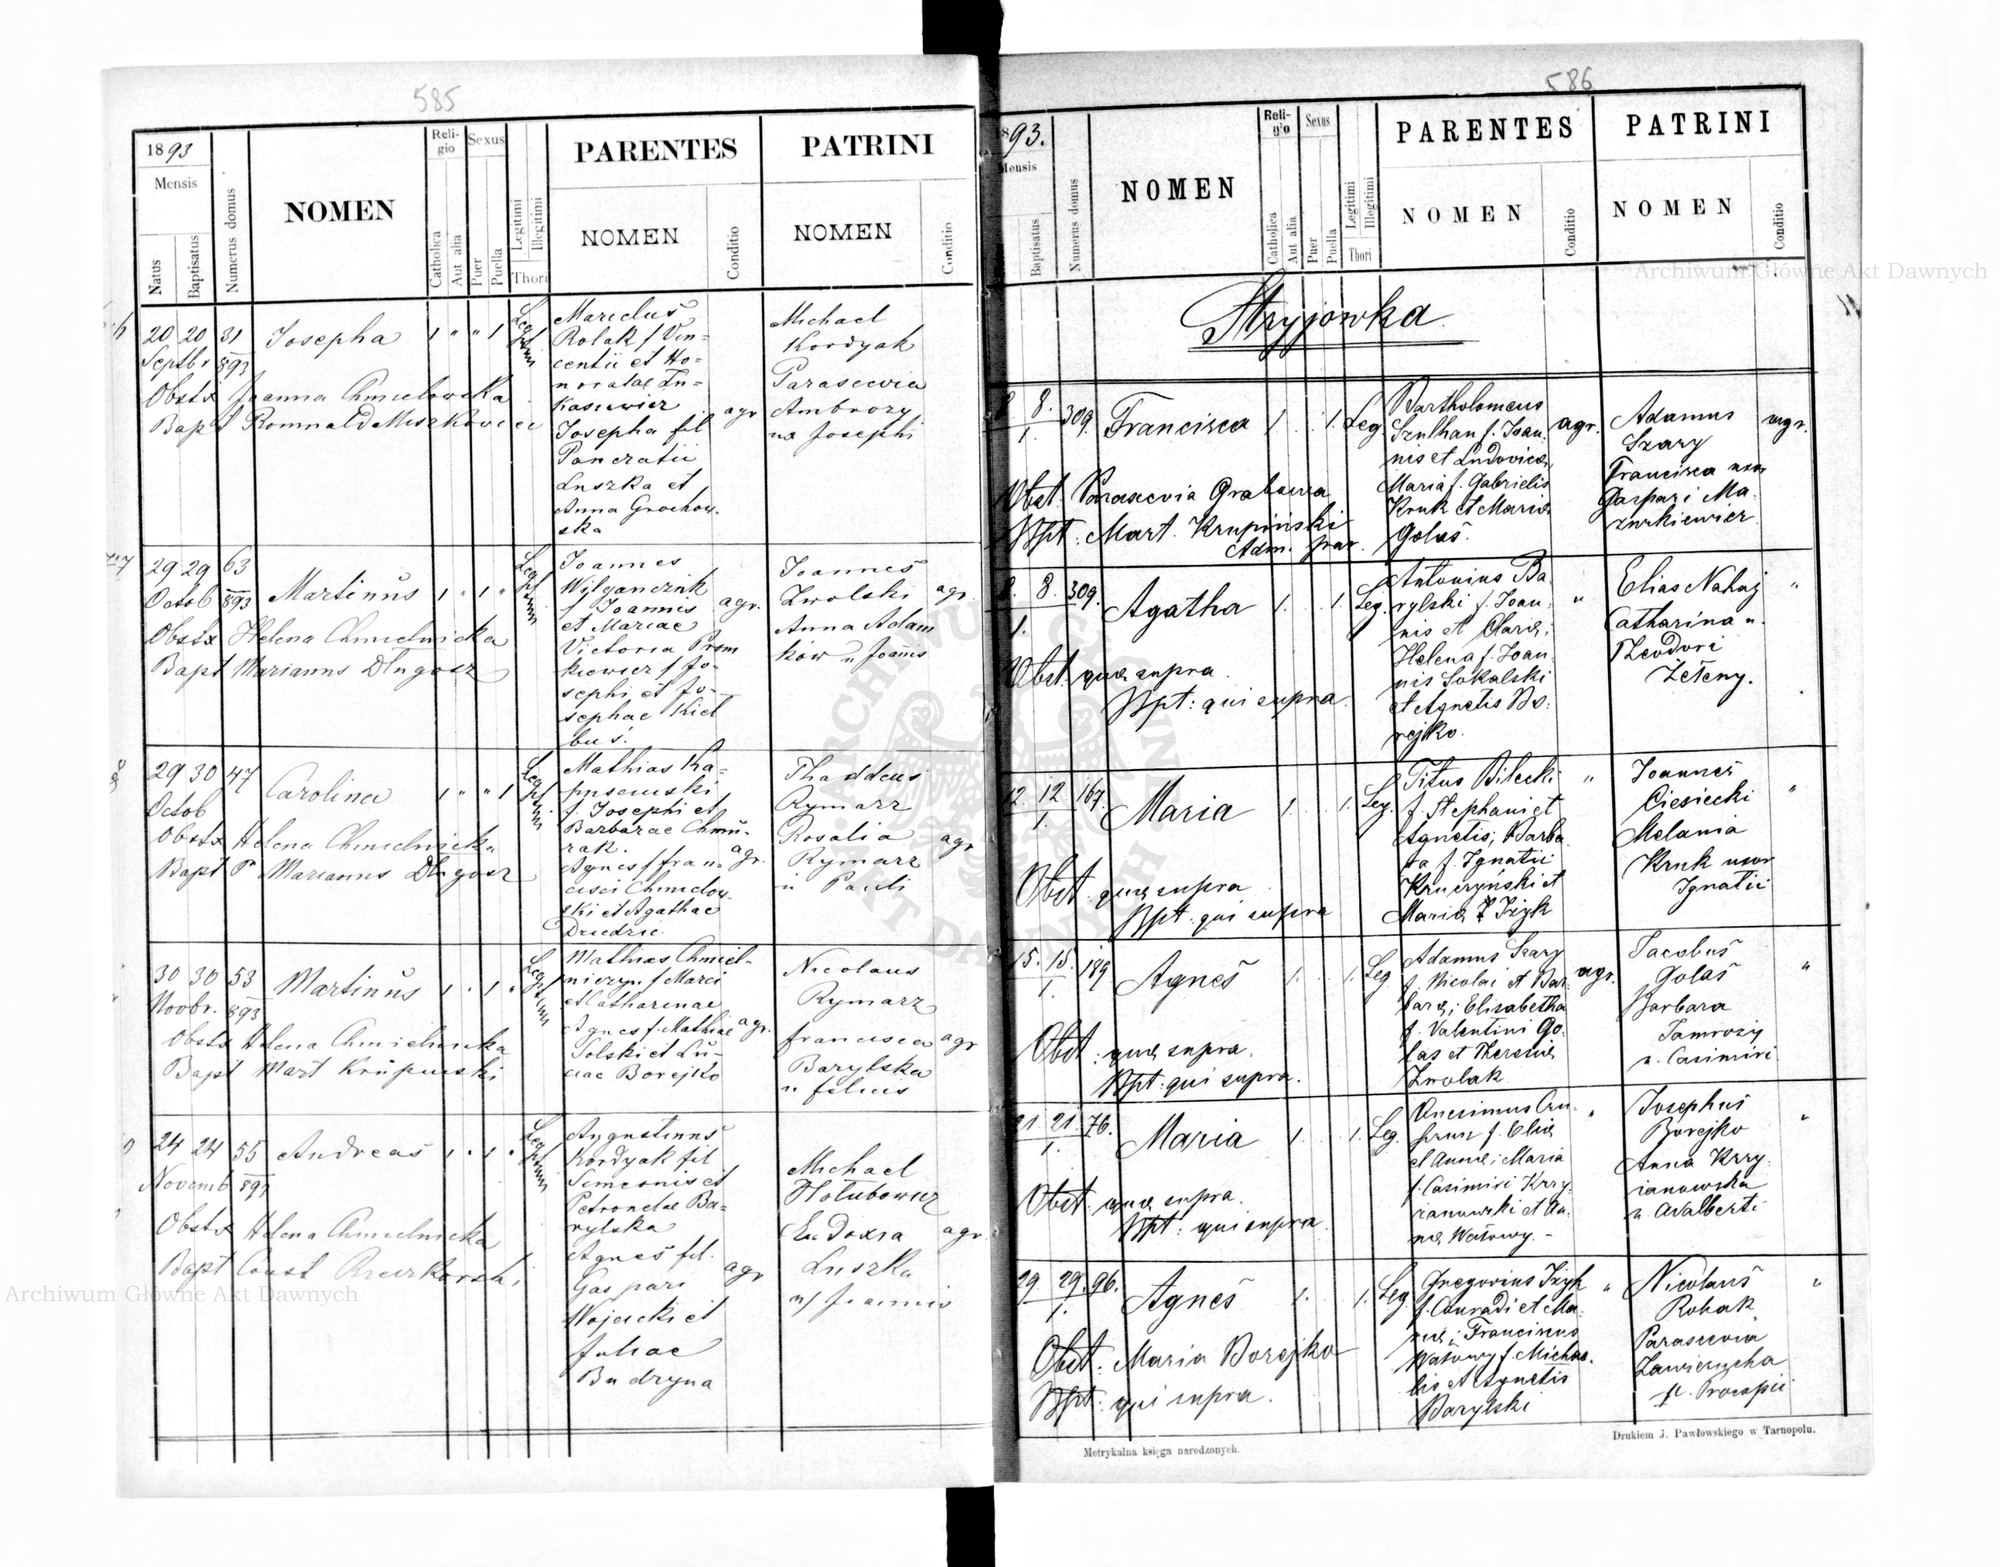 585
1893
Mensis
Natus
Baptisatus
Numerus domus
NOMEN
Religio
Catholica
Aut alia
Sexus
Puer
Puella
Legitimi
Illegitimi
Thori
PARENTES
NOMEN
Conditio
PATRINI
NOMEN
Conditio
20 20 31
Septbr 893
Josepha 1 " " 1
Obstx Joanna Chmielowska
Bapt Romuald Miszkowicz
Marcelus
Rolak f Vin=
centii et Ho=
noratae Lu=
kasiewicz
Josepha fil
Pancratii
Luszka et
Anna Grochow-
ska
agr
Michael
Kordyak
Parascevia
Ambrozy
ux Josephi
29 29 63
Octob 893
Martinus 1 " 1 "
Obstx Helena Chmielnicka
Bapt Marianus Długosz
Joannes
f Joannis
et Mariae
Victoria
kiewicz f Jo-
sephi et Jo-
sephae Kieł
buś.
agr.
Joannes
Zwolski
Anna Adam
ków u Joannis
agr.
29 30 47
Octob
Carolina 1 " " 1
Obstx Helena Chmielnicka
Bapt P Marianus Długosz
Mathias Ka=
f. Josephi et
Barbarae Chmu-
rak.
Agnes f Fran=
cisci Chmielow-
ski et Agathae
Dziedzic.
agr.
Thaddeus
Rymarz
Rosalia
Rymarz
u Pauli
agr
30 30 53
Novbr. 893
Martinus 1 . 1 "
Obstx Helena Chmielnicka
Bapt Mart Krupinski
Mathias Chmiel-
niczyn f Marci
et Catharinae
Agnes f. Mathiae
Solski et Lu-
ciae Borejko
agr.
Nicolaus
Rymarz
Francisca
Barylska
u filius
agr
24 24 55
Novemb 893
Andreas 1 . 1 .
Obstx Helena Chmielnicka
Bapt Const
Augustinus
Kordyak fil
Simeonis et
Petronelae Ba-
rylska
Agnes fil.
Gaspari
Wojcicki et
Juliae
Budzyna
agr
Michael
Hołubowicz
Eudoxia
Luszka
u/ Joannis
agr.
586
1893.
Mensis
Baptisatus
Numerus domus
NOMEN
Religio
Catholica
Aut alia
Sexus
Puer
Puella
Legitimi
Illegitimi
Thori
PARENTES
NOMEN
Conditio
PATRINI
NOMEN
Conditio
Stryjówka
8. 8. 309.
1.
Francisca 1 . . 1. Leg.
Obst. Parascevia Grabowa
Bpt. Mart. Krupiński
Adm. par.
Bartholomeus
Szulhan f. Joan-
nis et Ludovicae,
Maria f. Gabrielis
Kruk et Mariae
Golaś.
agr.
Adamus
Szary
Francisca uxor
Gaspari Ma-
zurkiewicz
agr.
8. 8. 309.
1.
Agatha 1. . 1. Leg.
Obst. quae supra.
Bpt: qui supra.
Antonius Ba-
rylski f. Joan-
nis et Clarae;
Helena f. Joan-
nis Sokalski
et Agnetis Bo-
rejko.
"
Elias Nahaj
Catharina u.
Theodori
Zeteny.
"
12. 12 167.
1.
Maria 1. . 1. Leg.
Obst. quae supra
Bpt: qui supra
Titus Bilecki
f. Stephani et
Agnetis; Barba-
ra f. Ignatii
Kruczyński et
Mariae Iżyk
"
Joannes
Ciesiecki
Melania
Kruk uxor
Ignatii
"
15. 15. 189
1.
Agnes 1. . 1. Leg
Obst: quae supra.
Bpt: qui supra.
Adamus Szary
f. Nicolai et Bar-
barae; Elisabetha
f. Valentini Go-
laś et Theresiae
Zwolak
agr.
Jacobus
Golaś
Barbara
Jamroziy
u. Casimiri
"
21. 21. 76.
1.
Maria 1. . 1. Leg.
Obst. quae supra.
Bpt: qui supra.
f. Eliae
et Annae; Maria
f. Casimiri Krzy-
żanowski et An-
nae Watowy. -
"
Josephus
Borejko
Anna Krzy-
żanowska
u. Adalberti
"
29. 29. 96.
1.
Agnes 1. . 1. Leg.
Obst: Maria Borejko
Bpt: qui supra.
Gregorius Iżyk
f. Conradi et Ma-
riae; Francisca
Watowy f. Michae-
lis et Agnetis
Barylski
"
Nicolaus
Robak
Parascevia
Zawierucha
u. Procopii
"
Metrykalna księga narodzonych.
Drukiem J. Pawłowskiego w Tarnopolu.
Archiwum Główne Akt Dawnych
Archiwum Główne Akt Dawnych